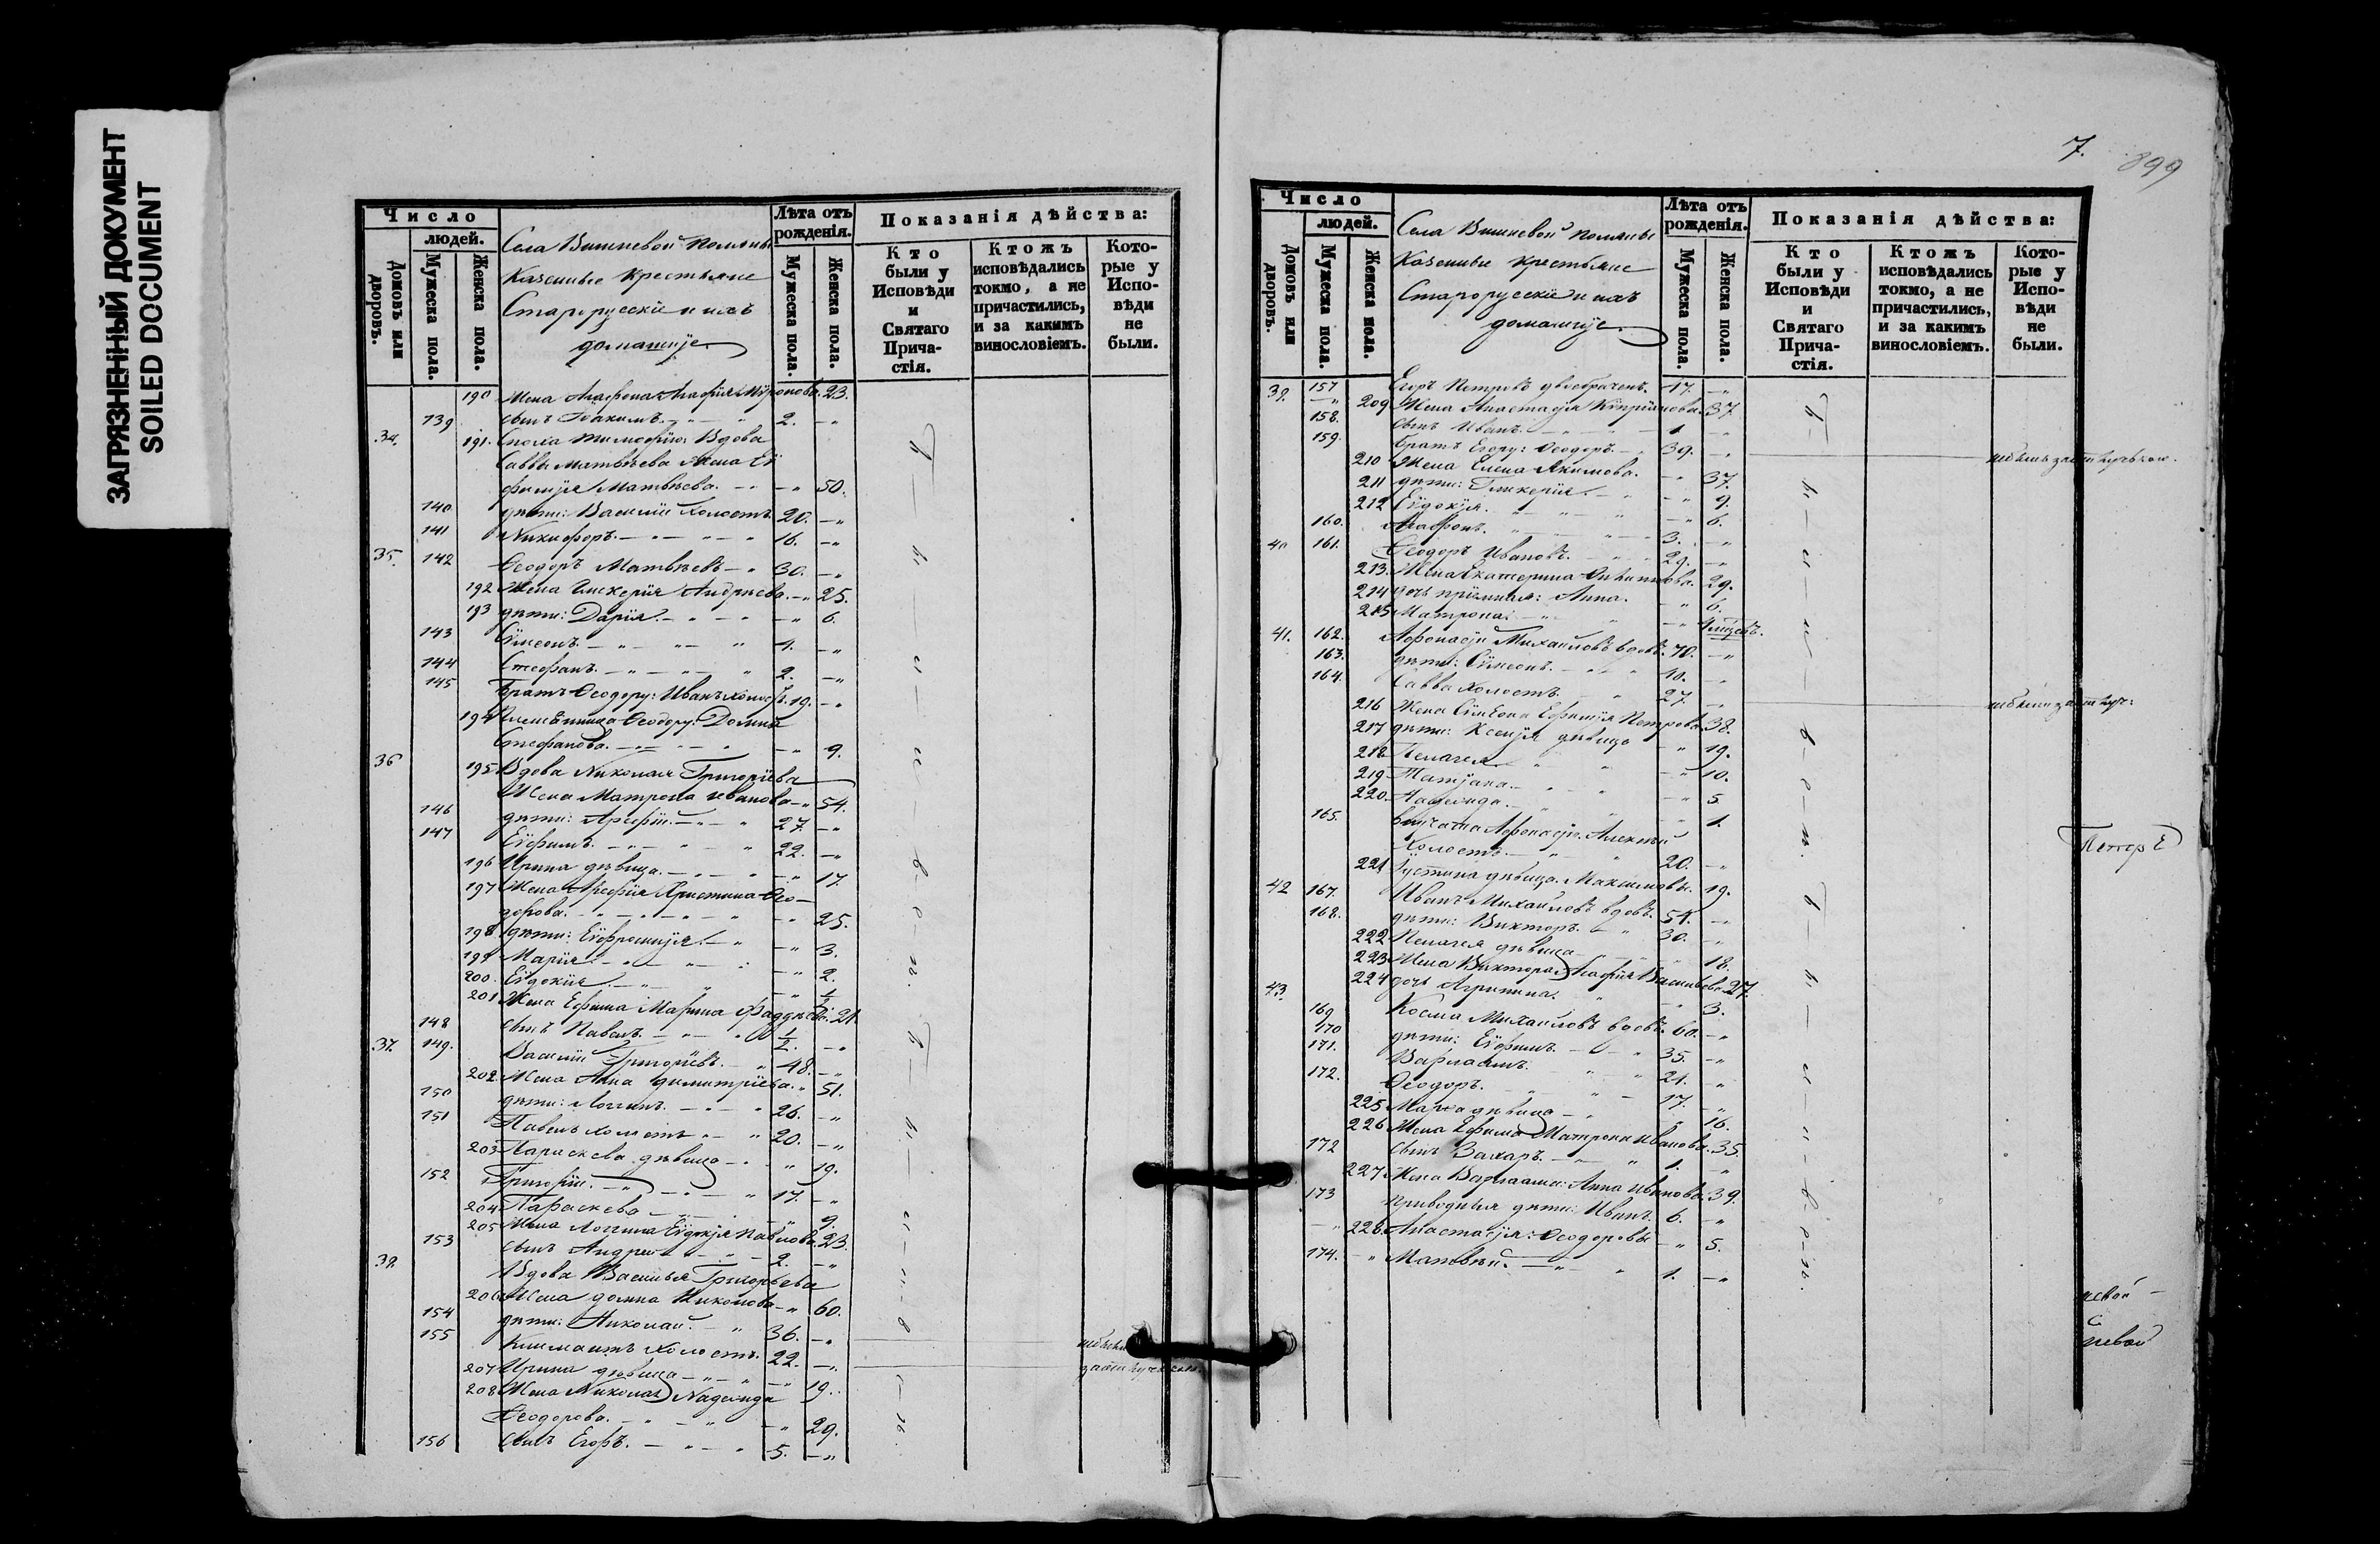 ЗАГРЯЗНЕННЫЙ ДОКУМЕНТ
SOILED DOCUMENT
Число
людей.
Домовъ или дворовъ.
Мужеска пола.
Женска пола.
Села Вишневой Поляны
Казенные Крестьяне
Старорусскіе и ихъ
домашніе
Лѣта отъ рожденія.
Мужеска пола.
Женска пола.
Показанія дѣйства:
Кто были у Исповѣди и Святаго Причастія.
Ктожъ исповѣдались токмо, а не причастились, и за какимъ винословіемъ.
Которые у Исповѣди не были.
190 Жена Агафона Агафія Миронова. 23.
139 сынъ Іоакимъ. 2.
34. 191. Вдова
Саввы Матвѣева жена Ев
фимія Матвѣева. 50.
140 дѣти: Василій холостъ. 20.
141 Никифоръ. 16.
35. 142 Ѳеодоръ Матвѣевъ 30.
192 Жена Гликерія Андреева. 25.
193 дѣти: Дарія. 6.
143 Сѵмеонъ. 4.
144 Стефанъ. 2.
145 Братъ Ѳеодору: Иванъ холостъ. 19.
194 Племянница Ѳеодору: Домна
Стефанова. 9.
36 195 Вдова Николая Григоріева
Жена Матрона Иванова 54.
146 дѣти: Арефій. 27.
147 Евфимъ. 22.
196 Ирина дѣвица. 17.
197 Жена Арефія Христина Ѳео-
дорова. 25.
198 дѣти: Евфросинія. 3.
199 Марія. 2.
200. Евдокія. 1/2
201 Жена Ефима Марина Фаддѣева. 21.
148 сынъ Павелъ. 1/2.
37. 149. Василій Григоріевъ. 48.
202. Жена Анна Димитріева. 51.
150 дѣти: Логгинъ. 26.
151 Павелъ холостъ 20.
203 Параскева дѣвица 19.
152 Григорій. 17.
204 Параскева 9.
205 Жена Логгина Евдокія Павлова. 23.
153 сынъ Андрей 2.
38. Вдова Василья Григорьева
206 Жена Домна Никонова 60.
154 дѣти: Николай. 36.
155 холостъ. 22.
207 Ирина дѣвица 19.
208 Жена Николая Надежда
Ѳеодорова. 29.
156 сынъ Егоръ. 5.
7.
899
Число
людей.
Домовъ или дворовъ.
Мужеска пола.
Женска пола.
Села Вишневой Поляны
Казенные крестьяне
Старорусскіе и ихъ
домашніе
Лѣта отъ рожденія.
Мужеска пола.
Женска пола.
Показанія дѣйства:
Кто были у Исповѣди и Святаго Причастія.
Ктожъ исповѣдались токмо, а не причастились, и за какимъ винословіемъ.
Которые у Исповѣди не были.
39. 157 Егоръ Петровъ двоебраченъ. 47.
209 Жена Анастасія Кипріянова. 37.
158. сынъ Иванъ. 1.
159. Братъ Егору: Ѳеодоръ. 39.
210 Жена Елена Якимова. 37.
211 дѣти: Гликерія. 9.
212 Евдокія. 6.
160. Агафонъ. 3.
40 161. Ѳеодоръ Ивановъ. 29.
213. Жена Екатерина 29.
214 дочь Анна. 6.
215 Матрона:
41. 162. Аѳонасій Михайловъ вдовъ. 70.
163. дѣти: Сѵмеонъ. 40.
164. Савва холостъ. 27.
216 Жена Сѵмеона Ефимія Петрова. 38.
217 дѣти: Ксенія дѣвица 19.
218 Пелагея. 10.
219 Татіана. 5.
220. Надежда. 1.
165. внучата Аѳонасію: Алексѣй
холостъ. 20.
221 Іустина дѣвица. Максимовы. 19.
42 167. Иванъ Михайловъ вдовъ. 54.
168. дѣти: Викторъ. 30.
222 Пелагея дѣвица 18.
223 Жена Виктора Агафія Васильева. 27.
224 дочь Агрипина. 3.
43. 169 Косма Михайловъ вдовъ. 60.
170 дѣти: Евфимъ. 35.
171. Варлаамъ. 21.
172. Ѳеодоръ. 17.
225 Марѳа дѣвица 16.
226 Жена Ефима Матрона Иванова. 35.
172 сынъ Захаръ. 1.
227 Жена Варлаама: Анна Иванова. 39.
173 приводныя дѣти: Иванъ. 6.
228. Анастасія: Ѳеодоровы 5.
174. Матвѣй. 1.